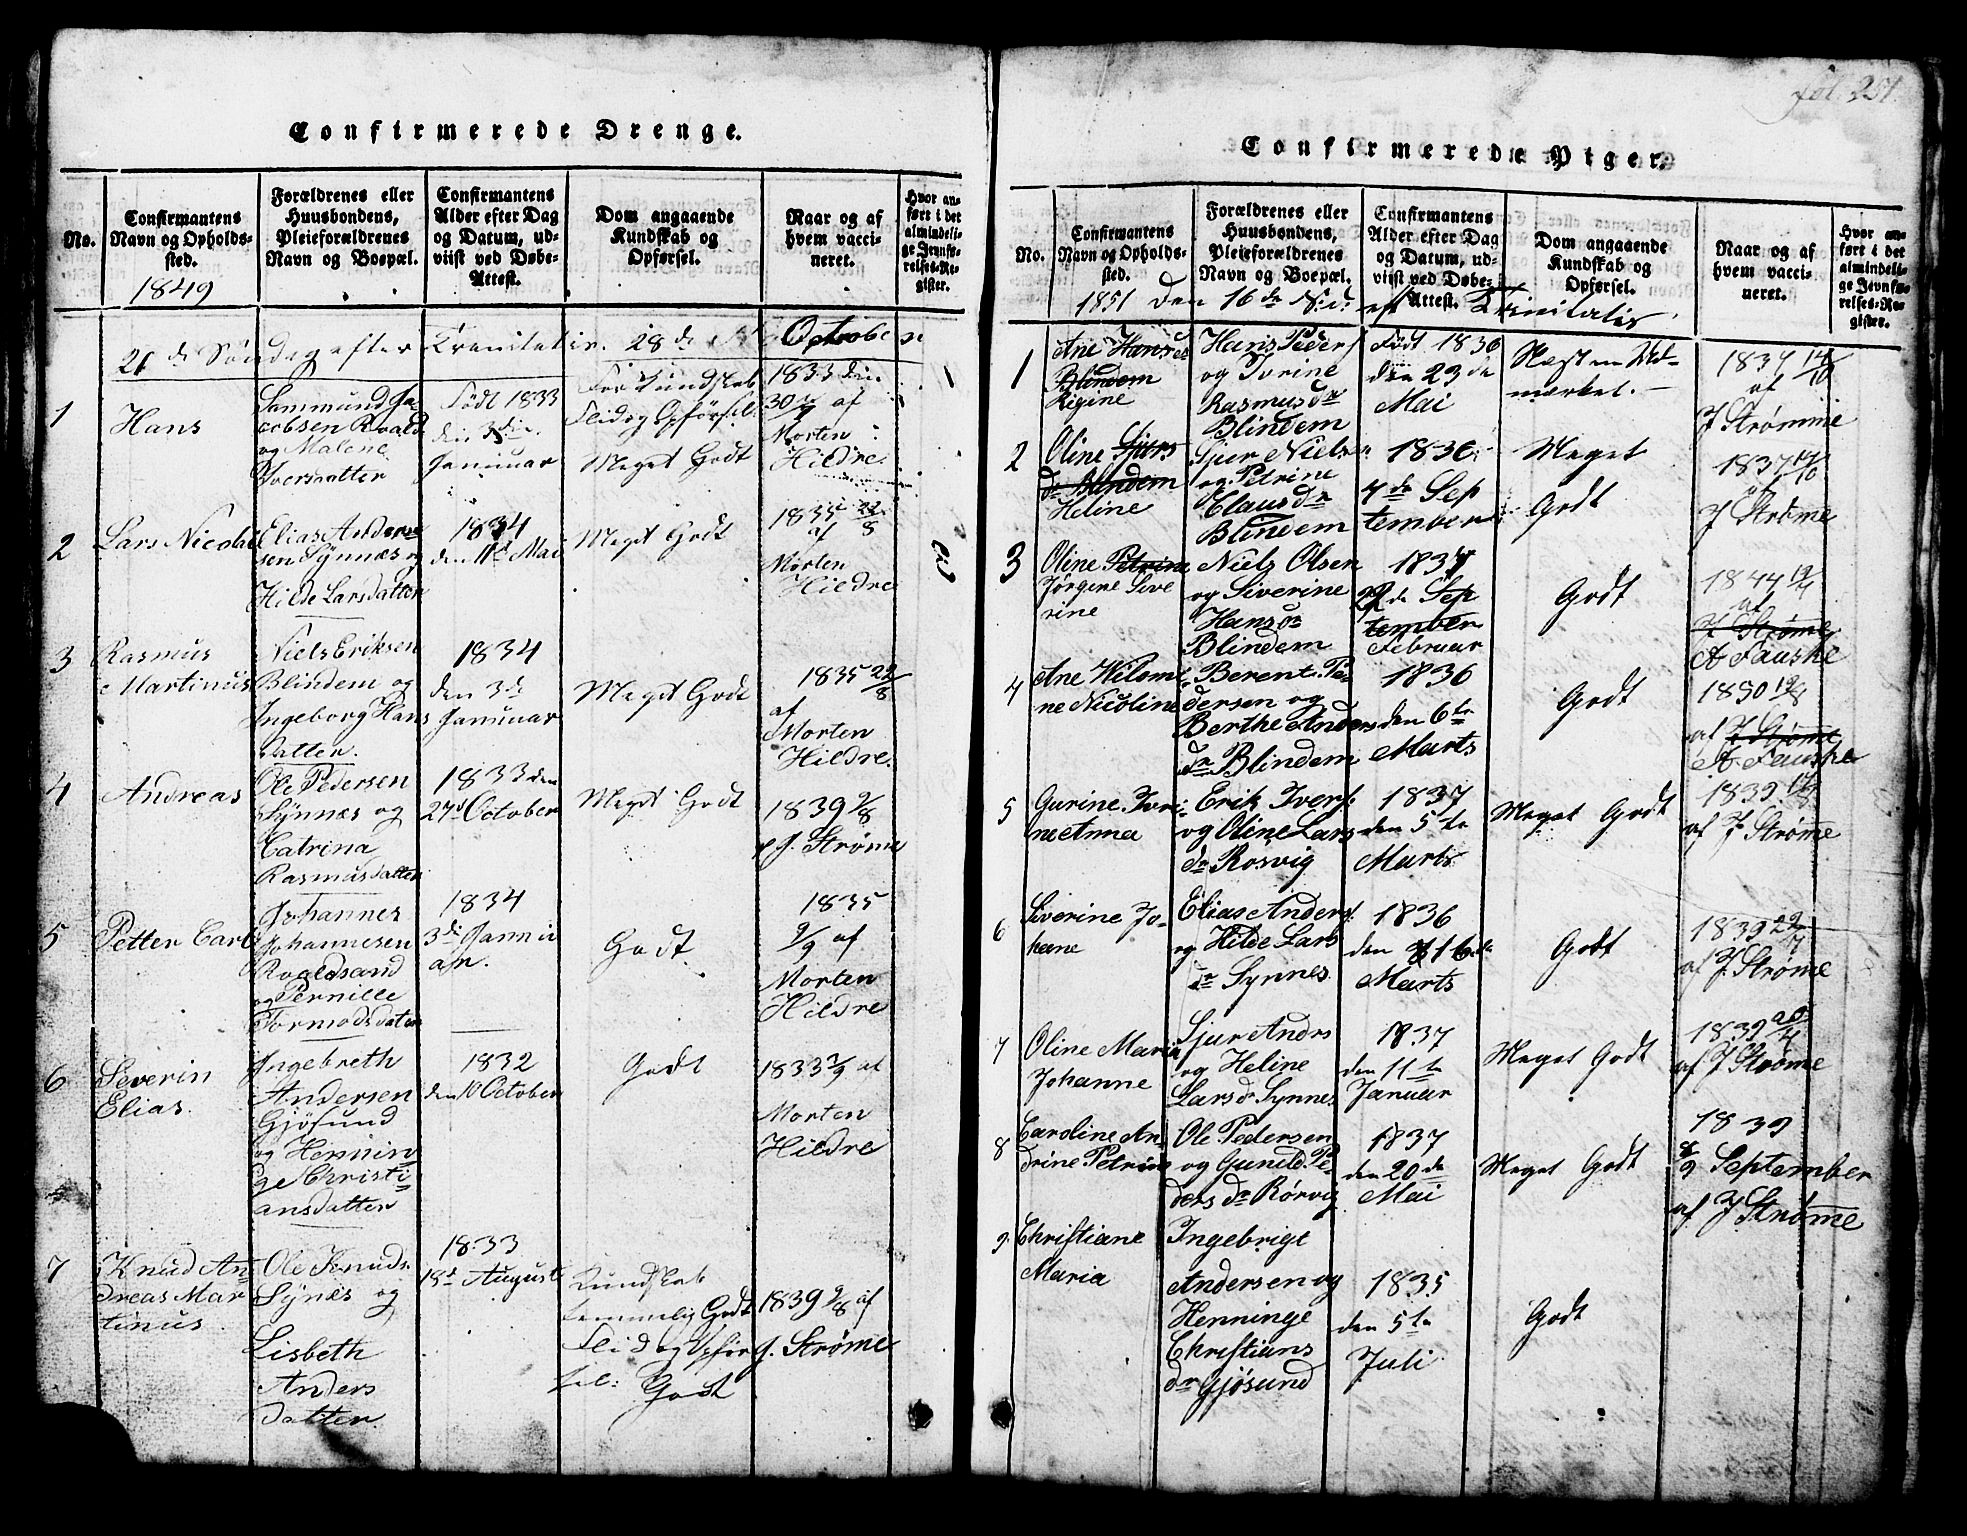 Confirmerede Drenge.
No.
Confirmantens
Navn og Opholds-
sted.
1849
Forældrenes eller
Huusbondens,
Pleieforældrenes
Navn og Boepæl.
Confirmantens
Alder efter Dag
og Datum, ud-
viist ved Døbe-
Attest.
Dom angaaende
Kundskab og
Opførsel.
Naar og af
hvem vacci-
neret.
Hvor an-
ført i det
almindeli-
ge Jevnfø-
relses-Re-
gister.
21 de Søndag efter Trenitatis. 28 de October
1
Hans
Sammund Ja-
cobsen Roald
og Malene
Iversdatter
Født 1833
den 3die
Januar
For Kundskab
Fleid og Opførsel
Meget Godt
1833 den
30 af
Morten
Hildre
2
Lars Nicolai
Elias Ander-
sen Synnæs og
Hilde Larsdatter
1834
den 11te Mai
Meget Godt
1835 22/8
af
Morten
Hildre
3
Rasmus
Martinus
Niels Eriksen
Blindem og
Ingeborg Hans
datter.
1834
den 3de
Januar
Meget Godt
1835 22/8
af
Morten
Hildre.
4
Andreas
Ole Pedersen
Synnæs og
Catrina
Rasmusdatter
1833 den
27d October
Meget Godt
1839 9/8
J. Strøme
5
Petter Carl
Johannes
Johannesen
Roaldsand
og Pernille
Tormodsdater
1834
3de Janu
ar.
Godt
1835
9/9 af
Morten
Hildre
6
Severin
Elias.
Ingebreth
Andersen
Gjøsund
og Hennin
ge Christi-
ansdatter
1832
den 10 October
Godt
1833 2/9 af
Morten
Hildre
7
Knud An-
dreas Mar
tinus
Ole Knuds.
Synæs og
Lisbeth
Anders
datter.
1833
18d August
Kundskab
temmelig Godt
Fleid og Opfør
sel: Godt
1839 9/8 af
J. Strøme
fol. 251.
Confirmerede Piger.
No.
Confirmantens
Navn og Opholds-
sted.
Forældrenes eller
Huusbondens,
Pleieforældrenes
Navn og Boepæl.
Confirmantens
Alder efter Dag
og Datum, ud-
viist ved Døbe-
Attest.
Dom angaaende
Kundskab og
Opførsel.
Naar og af
hvem vacci-
neret.
Hvor an-
ført i det
almindeli-
ge Jevnfø-
relses-Re-
gister.
1851 den 16de eft Trinitatis
1
Ane Hansd
Blindem
Rigine
Hans Peders
og Ivrine
Rasmus dr
Blindem
Født 1836
den 23 de
Mai
Næsten Ud-
mærket.
1837 14/10
af
J Strømme
2
Oline Sjurs
dr Blindem
Heline
Sjur Niels
og Petrine
Claus dr
Blindem
1836
7de Sep
tember
Meget
Godt
1837 14/10
af
J Strøme
3
Oline Petrine
Jørgine Seve
rine
Niels Olsen
og Siverine
Hans dr
Blindem
1837
22 de Sep
tember
Februar
Godt
1844 19/7
af
J Strøme
A Fauske
4
Ane Wilomi-
ne Nicoline
Berent Pe-
dersen og
Berthe Anders
dr Blindem
1836
den 6te
Marts
Godt
1850 19/8
af J Strøme
A Fauske
5
Gurine Ivri-
ne Anna
Erik Ivers.
og Oline Lars
dr Rosvig
1837
den 5te
Marts
Meget Godt
1839 17/8
af J Strøme
6
Siverine Jo-
hane
Elias Anders
og Hilde Lars
dr Synnes
1836
den 16de
Marts
Godt
1839 22/7
af J Strøme
7
Oline Maria
Johanne
Sjur Andrs
og Heline
Lars dr Synnes
1837
den 11te
Januar
Meget Godt
1839 20/7
af J Strøme
8
Caroline An-
drine Petrine
Ole Pedersen
og Gunild Pe-
ders dr Rørvig
1837
den 20de
Mai
Meget Godt
1839
9 September
af J Strøme
9
Christiane
Maria
Ingebrigt
Andersen og
Henninge
Christians
dr Gjøsund
1835
den 5te
Juli
Godt